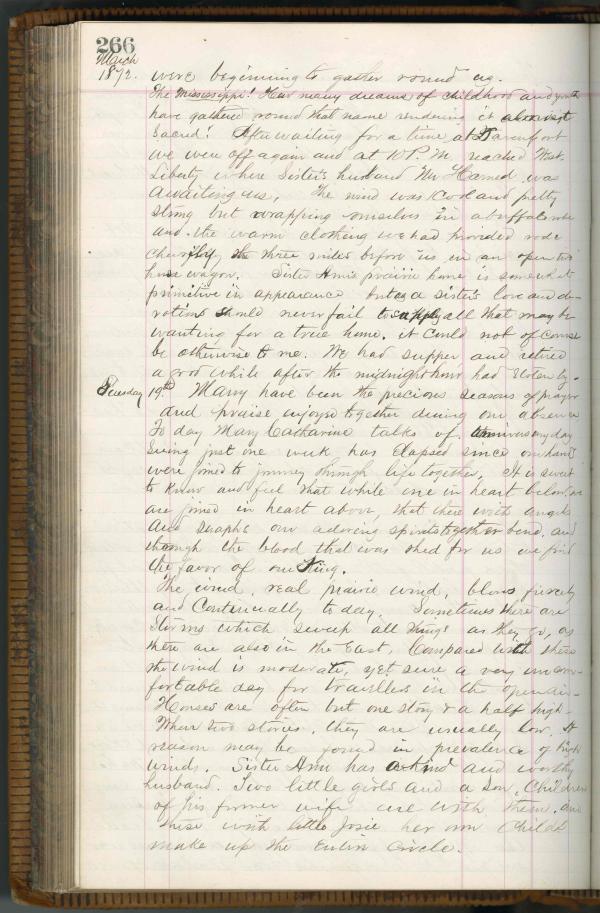 266
March
1872. were beginning to gather round us.
The Mississippi! How many dreams of childhood and youth
have gathered round that name rendering it almost
sacred! After waiting for a time at Davenport
we were off again and at 10 P.M. reached West
Liberty where Sister's husband Mr Harned was
awaiting us. The wind was cool and pretty
strong but wrapping ourselves in a buffalo robe
and the warm clothing we had provided rode
cheerfully the three miles before us in an open two
horse wagon. Sister Ann's prairie home is somewhat
primitive in appearance but as a sister's love and de-
votion should never fail to supply all that may be
wanting for a true home, it could not of course
be otherwise to me. We had supper and retired
a good while after the midnight hour had stolen by.
Tuesday 19th Many have been the precious seasons of prayer
and praise enjoyed together during our absence
To day Mary Catharine talks of anniversary day
being just one week has elapsed since our hands
were joined to journey through life together. It is sweet
to know and feel that while one in heart below, we
are joined in heart above, that there with angels
and seraphs our adoring spirits together bend, and
through the blood that was shed for us we find
the favor of our King.
The wind, real prairie wind, blows fiercely
and continually to day. Sometimes there are
storms which sweep all things as they go, as
there are also in the East. Compared with these
the wind is moderate, yet sure a very uncom-
fortable day for travellers in the open air.
Houses are often but one story & a half high.
When two stories, they are usually low. It
reason may be found in prevalence of high
winds. Sister Ann has a kind and worthy
husband. Two little girls and a son, Children
of his former wife are with them, and
these with little Josie her own Child
make up the entire circle.